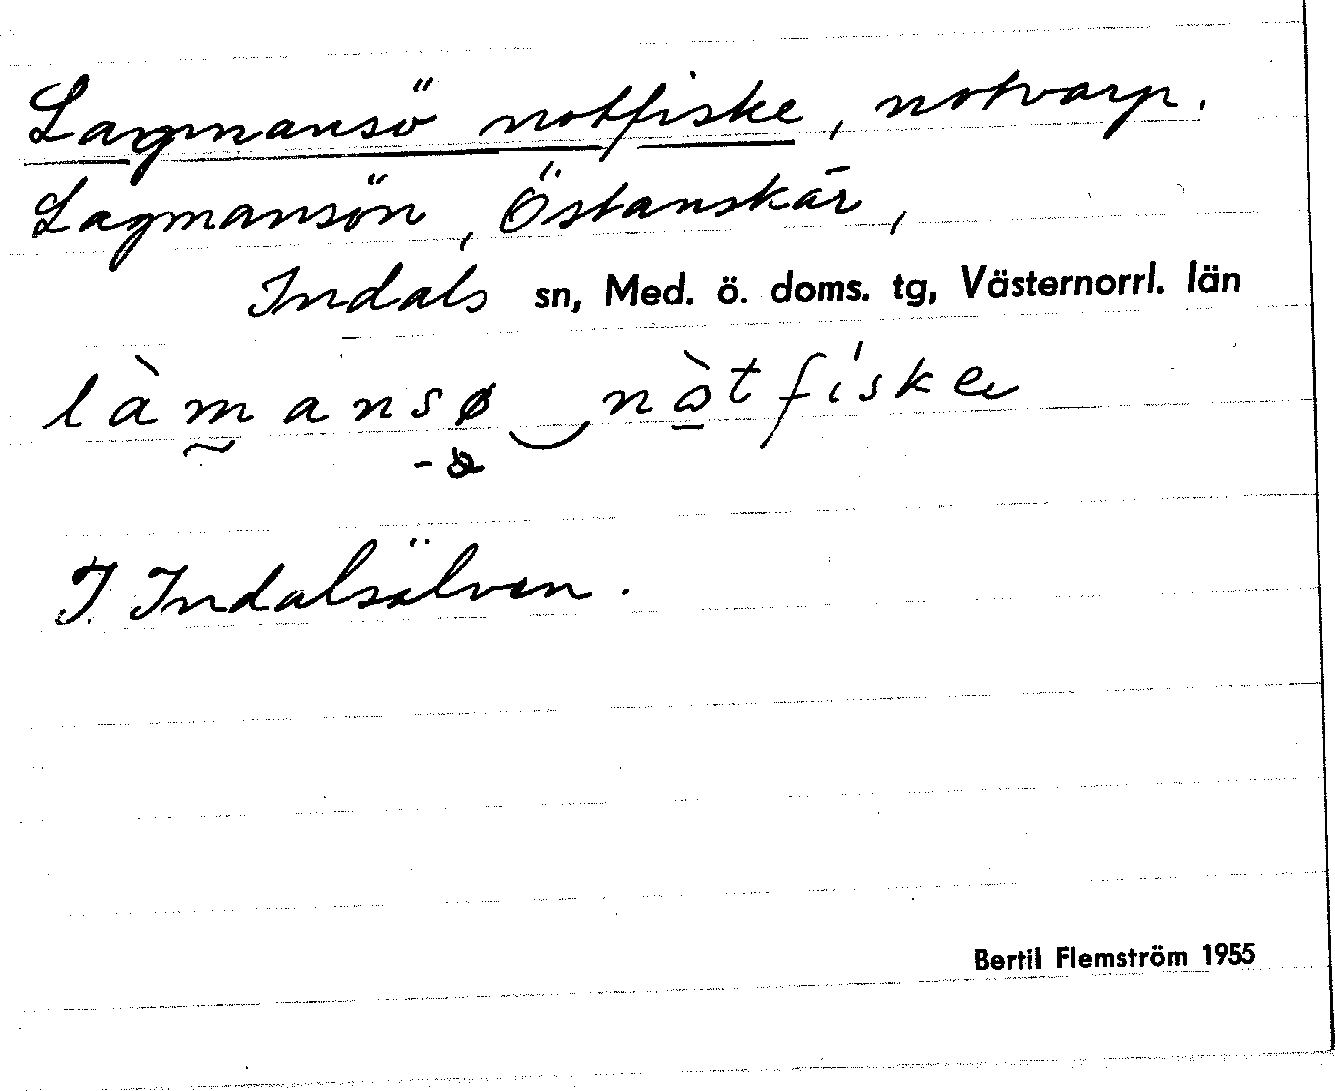 Lagmansö notfiske, notvarp.
Lagmansön, Östanskär,
Indals sn, Med. ö. doms. tg, Västernorrl. län
làmansø nòtfiske
I Indalsälven.
Bertil Flemström 1955